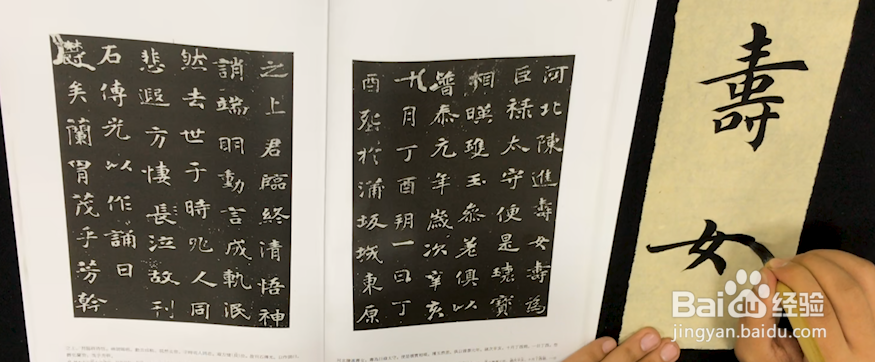 河北陳進壽女壽為
巨祿太守便是瓌寶
相暎瓊玉叅差俱以
普泰元年歲次辛亥
十月丁酉朔一日丁
酉塟於蒲坂城東原
之上君臨終清悟神
誚端明動言成軌泯
然去世于時兆人同
悲遐方悽長泣故刊
石傳光以作誦曰
欝矣蘭胄茂乎芳幹
壽女
Baidu经验
jingyan.baidu.com